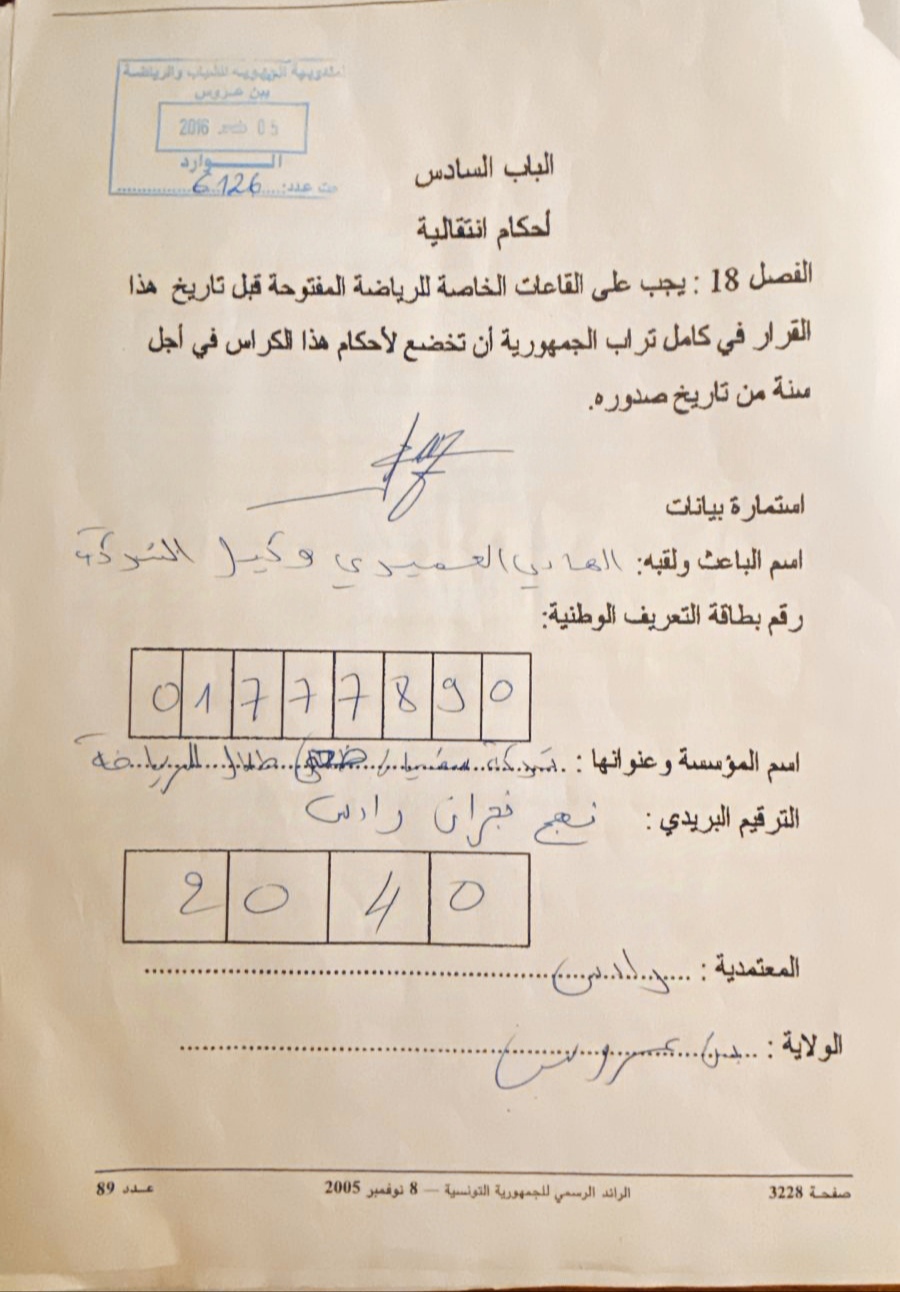 المندوبية الجهوية للشباب والرياضة
ببن عروس
2016 05
الـــــوارد
تحت عدد: 6126
الباب السادس
أحكام انتقالية
الفصل 18 : يجب على القاعات الخاصة للرياضة المفتوحة قبل تاريخ هذا
القرار في كامل تراب الجمهورية أن تخضع لأحكام هذا الكراس في أجل
سنة من تاريخ صدوره.
استمارة بيانات
اسم الباعث ولقبه: الهادي العميدي وكيل الشركة
رقم بطاقة التعريف الوطنية:
0 1 7 7 7 8 9 0
اسم المؤسسة وعنوانها : شركة طلال للرياضة
الترقيم البريدي : نهج نجران رادس
2 0 4 0
المعتمدية : رادس
الولاية : بن عروس
صفحة 3228 الرائد الرسمي للجمهورية التونسية — 8 نوفمبر 2005 عـدد 89